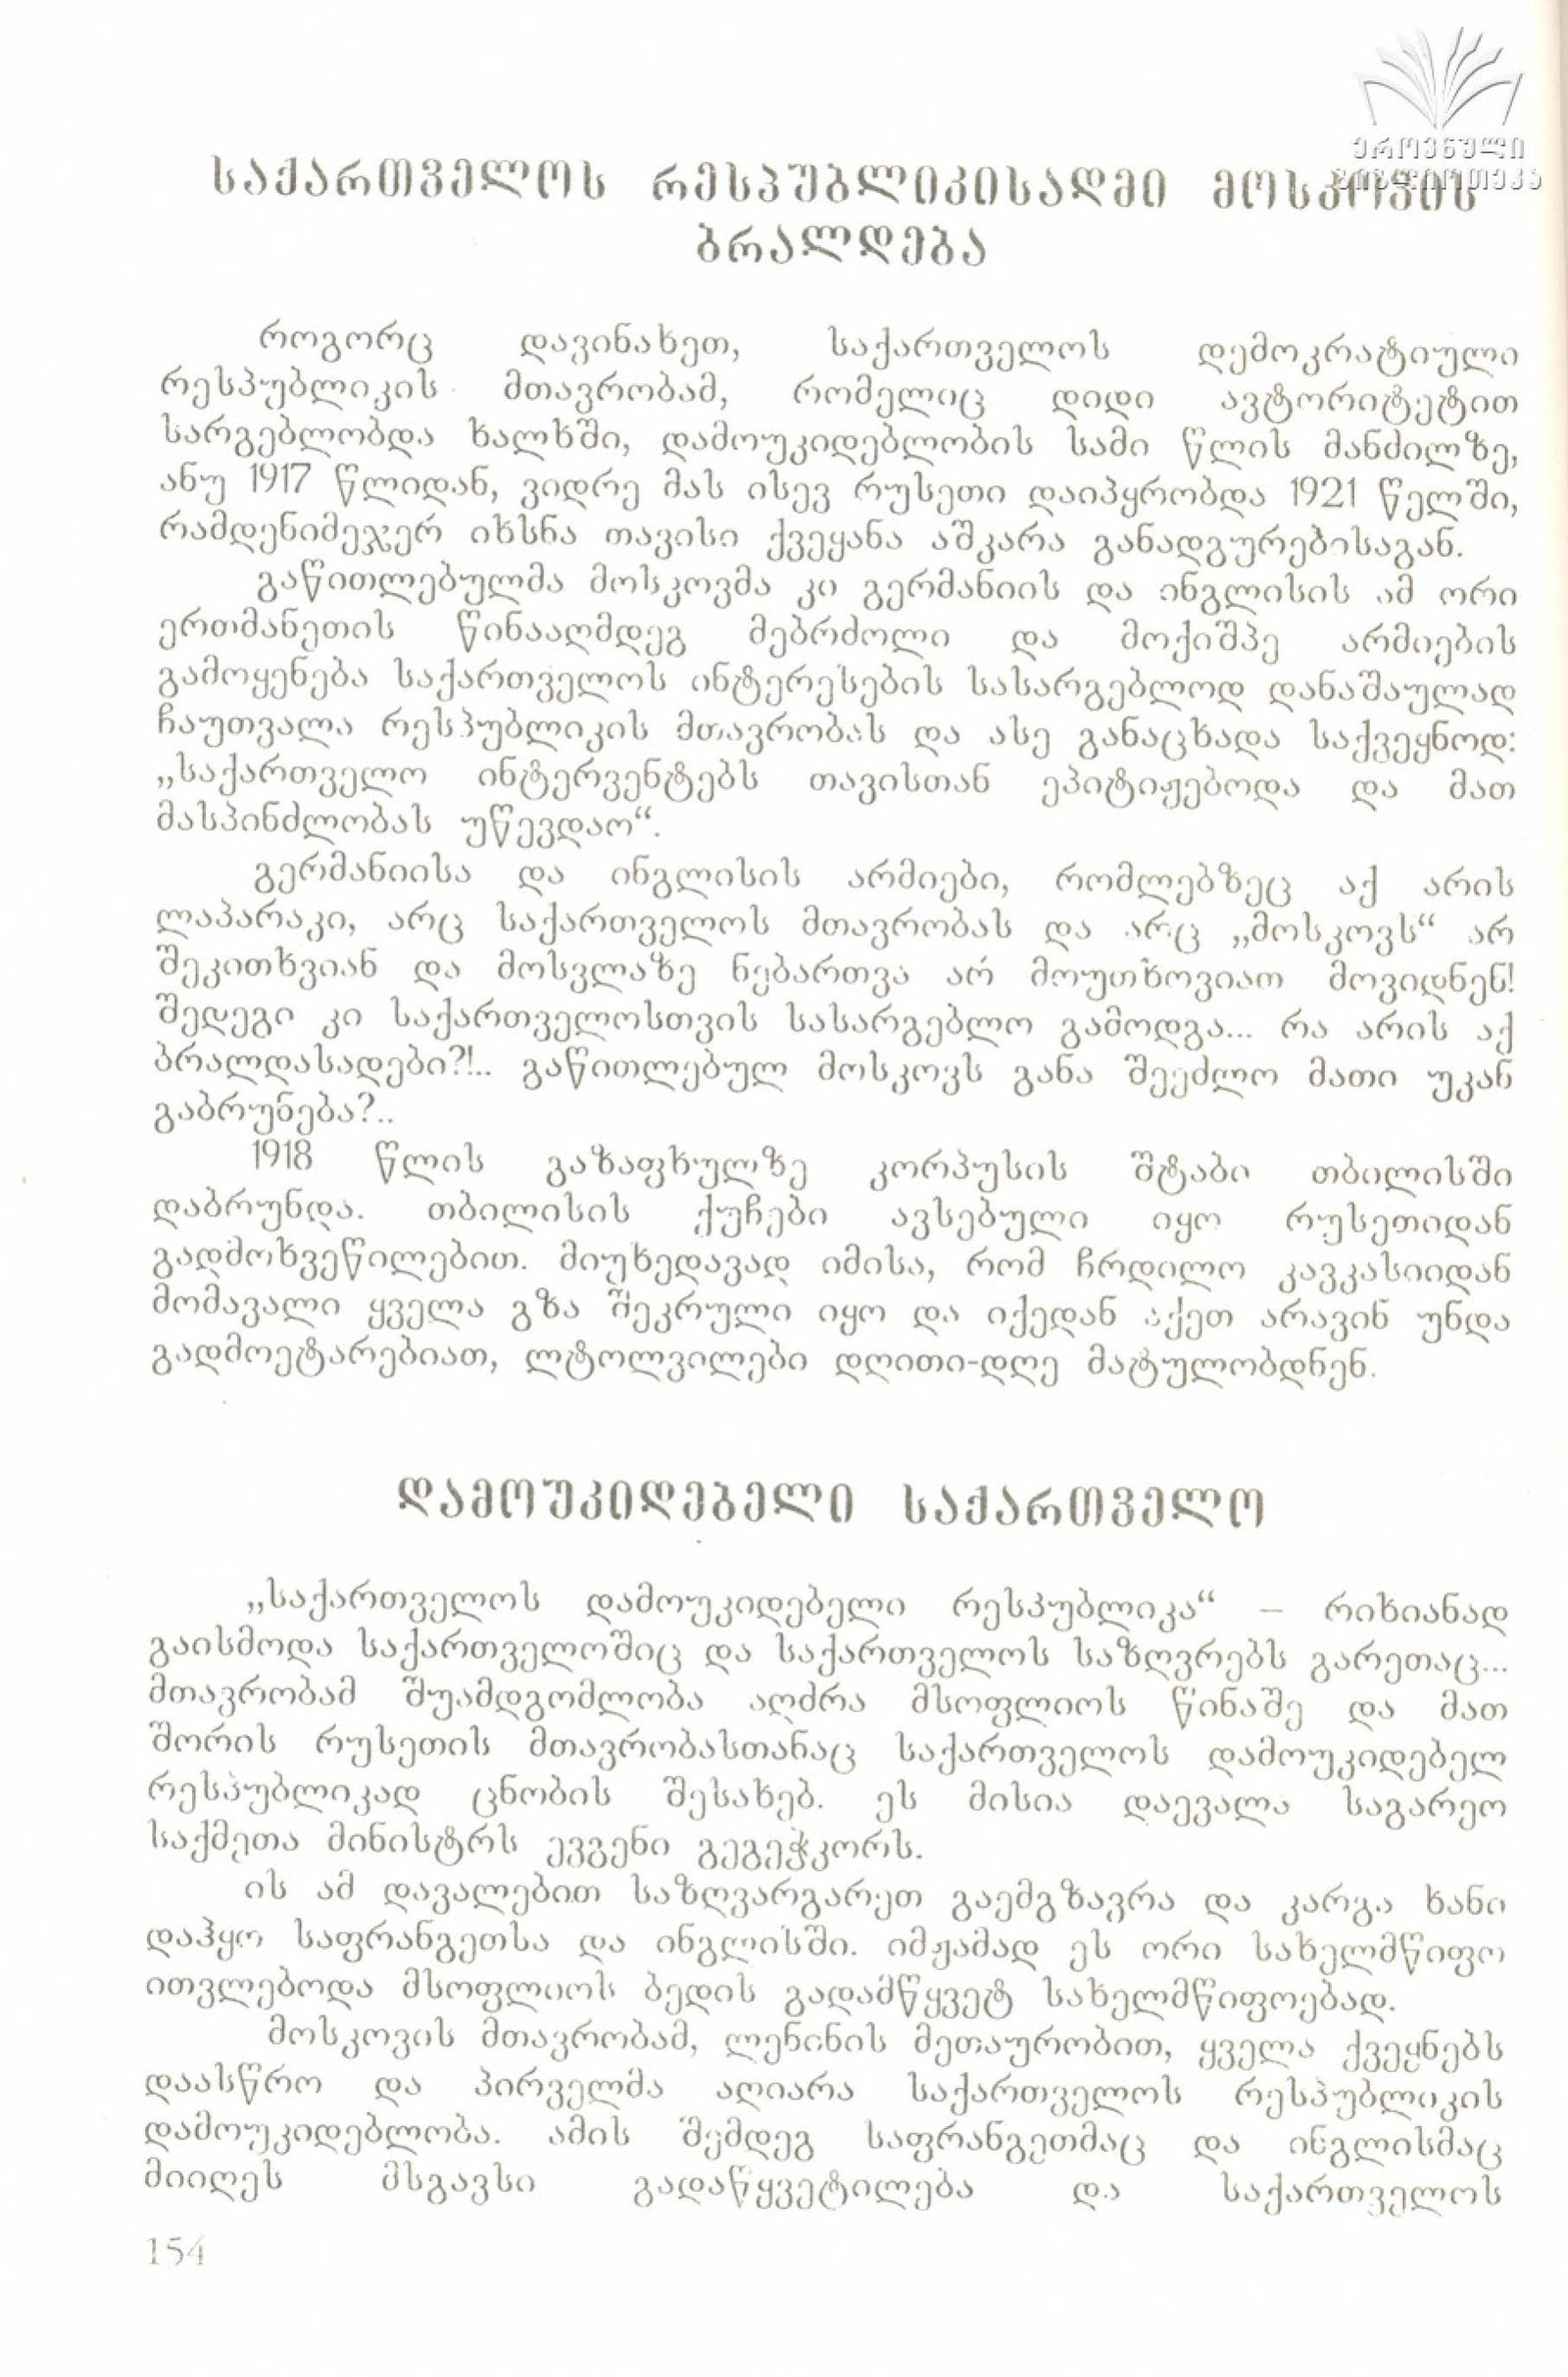 ეროვნული
ბიბლიოთეკა
საქართველოს რესპუბლიკისადმი მოსკოვის
ბრალდება
როგორც დავინახეთ, საქართველოს დემოკრატიული
რესპუბლიკის მთავრობამ, რომელიც დიდი ავტორიტეტით
სარგებლობდა ხალხში, დამოუკიდებლობის სამი წლის მანძილზე,
ანუ 1917 წლიდან, ვიდრე მას ისევ რუსეთი დაიპყრობდა 1921 წელში,
რამდენიმეჯერ იხსნა თავისი ქვეყანა აშკარა განადგურებისაგან.
გაწითლებულმა მოსკოვმა კი გერმანიის და ინგლისის ამ ორი
ერთმანეთის წინააღმდეგ მებრძოლი და მოქიშპე არმიების
გამოყენება საქართველოს ინტერესების სასარგებლოდ დანაშაულად
ჩაუთვალა რესპუბლიკის მთავრობას და ასე განაცხადა საქვეყნოდ:
„საქართველო ინტერვენტებს თავისთან ეპიტიჟებოდა და მათ
მასპინძლობას უწევდაო“.
გერმანიისა და ინგლისის არმიები, რომლებზეც აქ არის
ლაპარაკი, არც საქართველოს მთავრობას და არც „მოსკოვს“ არ
შეკითხვიან და მოსვლაზე ნებართვა არ მოუთხოვიათ მოვიდნენ!
შედეგი კი საქართველოსთვის სასარგებლო გამოდგა... რა არის აქ
ბრალდასადები?!.. გაწითლებულ მოსკოვს განა შეეძლო მათი უკან
გაბრუნება?..
1918 წლის გაზაფხულზე კორპუსის შტაბი თბილისში
დაბრუნდა. თბილისის ქუჩები ავსებული იყო რუსეთიდან
გადმოხვეწილებით. მიუხედავად იმისა, რომ ჩრდილო კავკასიიდან
მომავალი ყველა გზა შეკრული იყო და იქედან აქეთ არავინ უნდა
გადმოეტარებიათ, ლტოლვილები დღითი-დღე მატულობდნენ.
დამოუკიდებელი საქართველო
„საქართველოს დამოუკიდებელი რესპუბლიკა“ – რიხიანად
გაისმოდა საქართველოშიც და საქართველოს საზღვრებს გარეთაც...
მთავრობამ შუამდგომლობა აღძრა მსოფლიოს წინაშე და მათ
შორის რუსეთის მთავრობასთანაც საქართველოს დამოუკიდებელ
რესპუბლიკად ცნობის შესახებ. ეს მისია დაევალა საგარეო
საქმეთა მინისტრს ევგენი გეგეჭკორს.
ის ამ დავალებით საზღვარგარეთ გაემგზავრა და კარგა ხანი
დაჰყო საფრანგეთსა და ინგლისში. იმჟამად ეს ორი სახელმწიფო
ითვლებოდა მსოფლიოს ბედის გადამწყვეტ სახელმწიფოებად.
მოსკოვის მთავრობამ, ლენინის მეთაურობით, ყველა ქვეყნებს
დაასწრო და პირველმა აღიარა საქართველოს რესპუბლიკის
დამოუკიდებლობა. ამის შემდეგ საფრანგეთმაც და ინგლისმაც
მიიღეს მსგავსი გადაწყვეტილება და საქართველოს
154